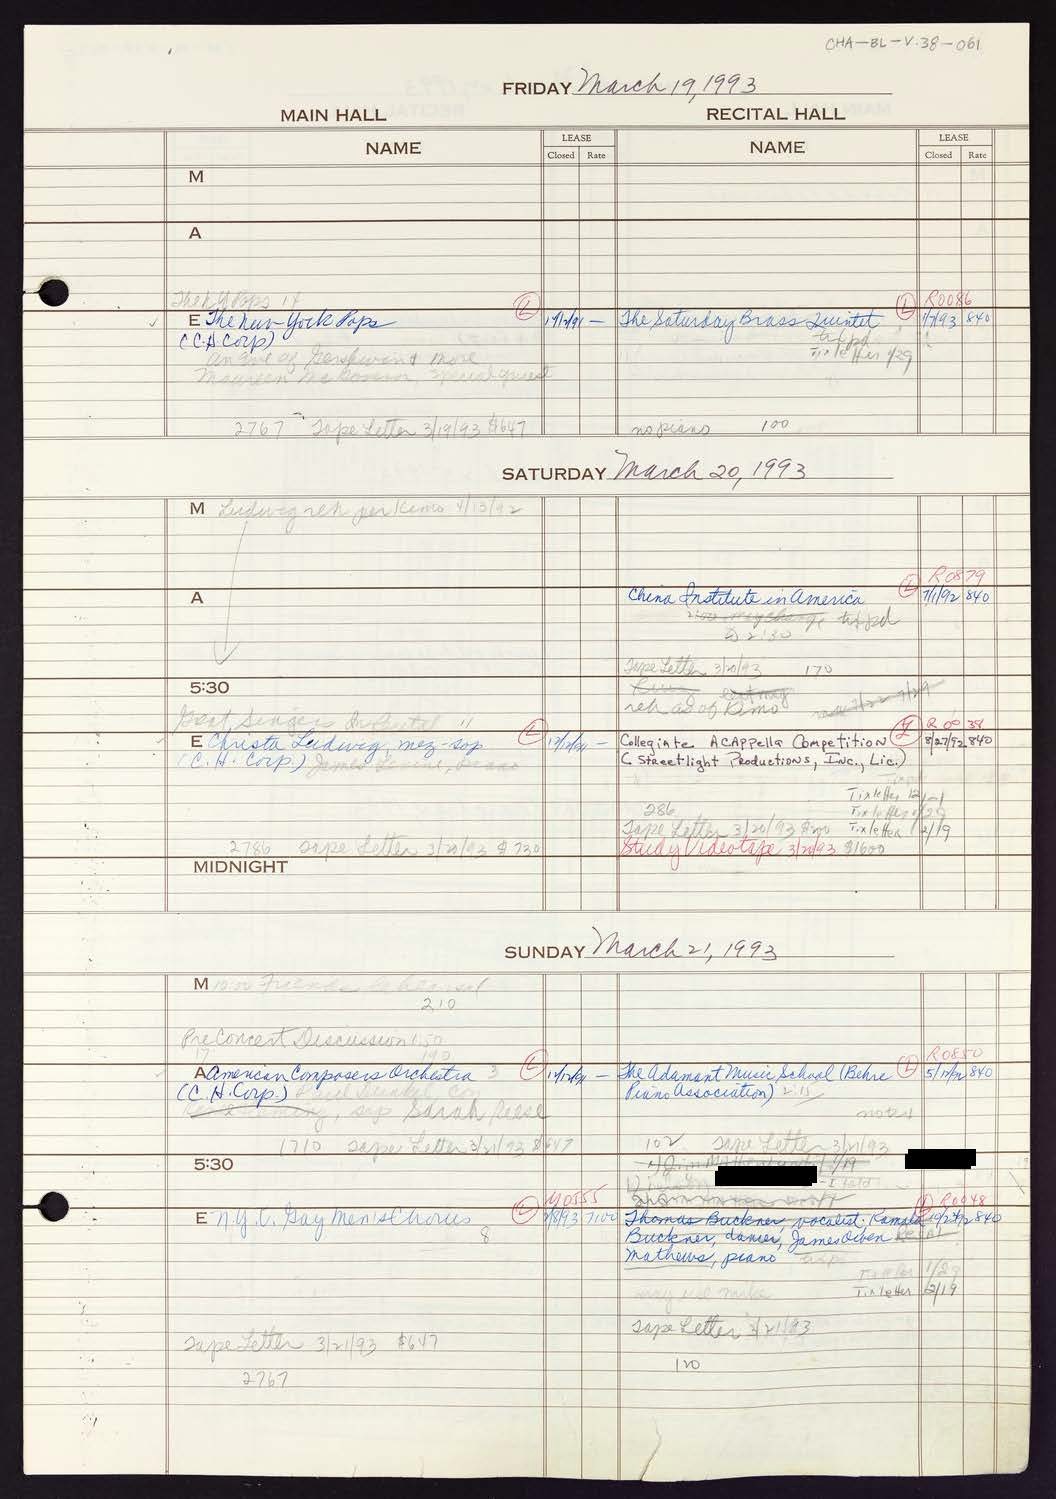 CHA-BL-V.38-061
FRIDAY March 19, 1993
MAIN HALL RECITAL HALL
NAME LEASE Closed Rate NAME LEASE Closed Rate
M
A
The NY Pops
L L R0086
E The New York Pops 12/12/91 — The Saturday Brass Quintet 1/7/93 840
(C.H. Corp)
Tix letter 1/29
An Eve of Gershwin & more
Maureen McGovern, special guest
2767 Tape Letter 3/19/93 $647 no piano 100
SATURDAY March 20, 1993
M Ludwig reh per Kimo 4/13/92
L R0879
A China Institute in America 7/1/92 840
2:30
Tape Letter 3/20/93 170
5:30
reh as of Kimo
Great Singers
L L
E Christa Ludwig, mez-sop — Collegiate ACAppella Competition 8/27/92 840
(C.H. Corp.) James Levine, piano (Streetlight Productions, Inc., Lic.)
Tix letter
286 Tix letter
Tape Letter 3/20/93 Tix letter 2/19
2786 Tape Letter 3/20/93 $730 Study Videotape 3/20/93 $1600
MIDNIGHT
SUNDAY March 21, 1993
M 10:00 Friends Rehearsal
210
PreConcert Discussion 1:50
L L R0850
A American Composers Orchestra 3 — The Adamant Music School (Behre 5/12/92 840
(C.H. Corp.) Piano Association) 2:15
sop Sarah Reese
1710 Tape Letter 3/21/93 $647 102 Tape Letter 3/21/93
5:30
L M0555 L R0948
E N.Y.C. Gay Men's Chorus 8 Thomas Buckner, vocalist; Kamala 840
Buckner, dancer, James Owen
Mathews, piano
Tix letter 1/29
may use mike Tix letter 2/19
Tape Letter 3/21/93
Tape Letter 3/21/93 $647
120
2767